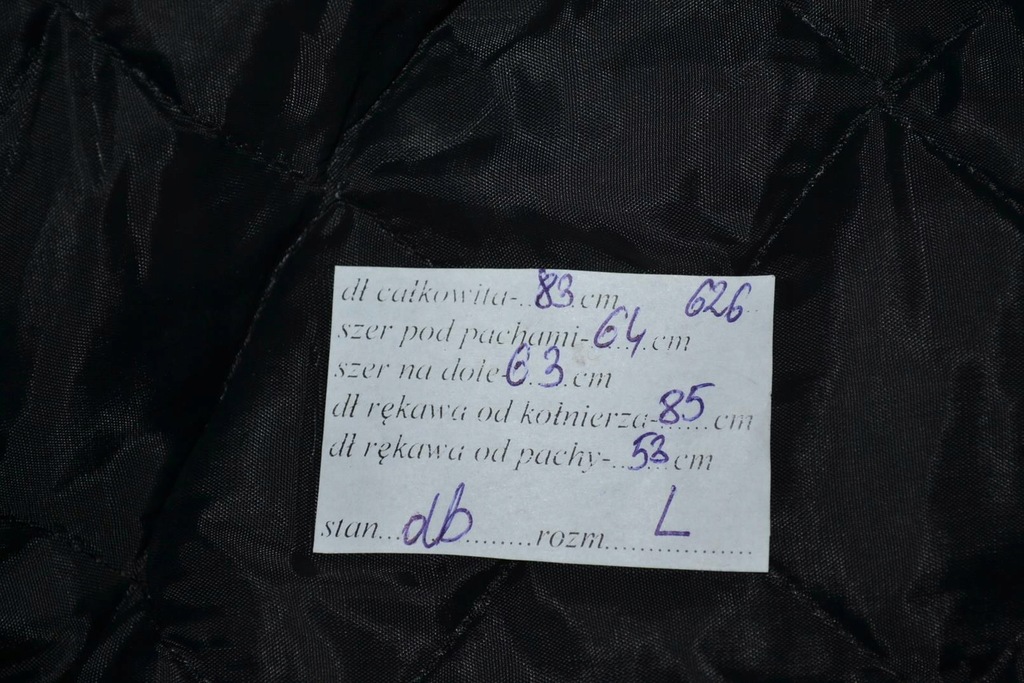 dł całkowita-..83.cm 626
szer pod pachami-64.cm
szer na dole-63.cm
dł rękawa od kołnierza-85cm
dł rękawa od pachy-..53cm
stan...db.........rozm....L..........